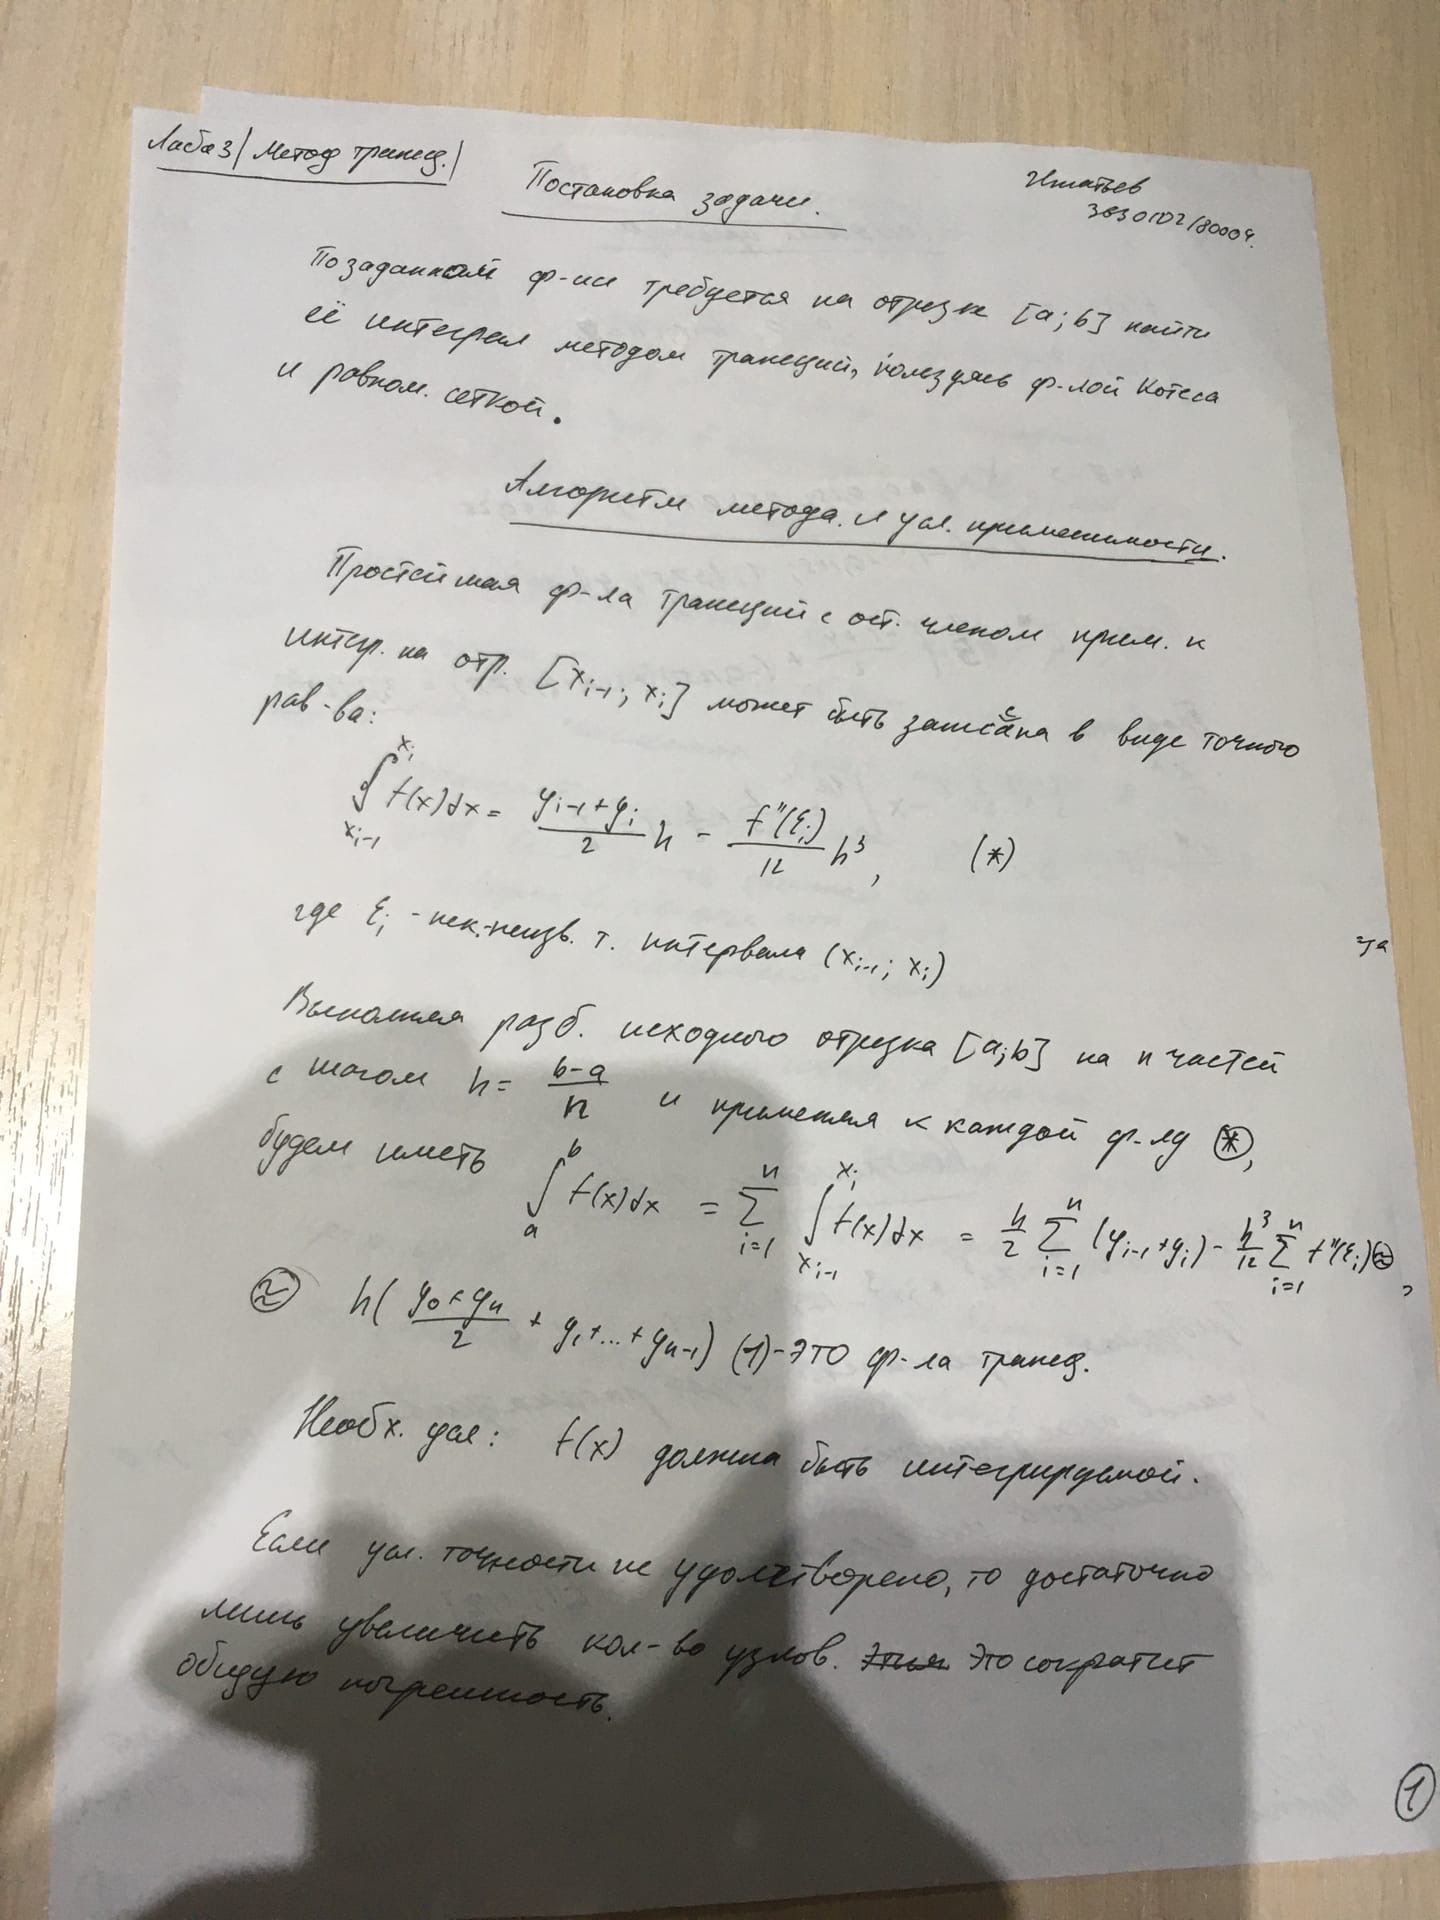 Лаба 3 | Метод трапец. |
Постановка задачи.
Игнатьев
3630102/80004.
По заданной ф-ии требуется на отрезке [a; b] найти
её интеграл методом трапеций, пользуясь ф-лой Котеса
и равном. сеткой.
Алгоритм метода. и усл. применимости.
Простейшая ф-ла трапеций с ост. членом прим. к
интегр. на отр. [x_{i-1}; x_i] может быть записана в виде точного
рав-ва:
∫_{x_{i-1}}^{x_i} f(x)dx = \frac{y_{i-1}+y_i}{2} h - \frac{f''(ξ_i)}{12} h^3, (*)
где ξ_i - нек.-неизв. т. интервала (x_{i-1}; x_i)
Выполняя разб. исходного отрезка [a;b] на n частей
с шагом h = \frac{b-a}{n} и применяя к каждой ф-лу (*),
будем иметь ∫_a^b f(x)dx = ∑_{i=1}^n ∫_{x_{i-1}}^{x_i} f(x)dx = \frac{h}{2} ∑_{i=1}^n (y_{i-1}+y_i) - \frac{h^3}{12} ∑_{i=1}^n f''(ξ_i) ≈,
≈ h( \frac{y_0+y_n}{2} + y_1+...+y_{n-1}) (1) - это ф-ла трапец.
Необх. усл: f(x) должна быть интегрируемой.
Если усл. точности не удовлетворено, то достаточно
лишь увеличить кол-во узлов. Это сократит
общую погрешность.
1